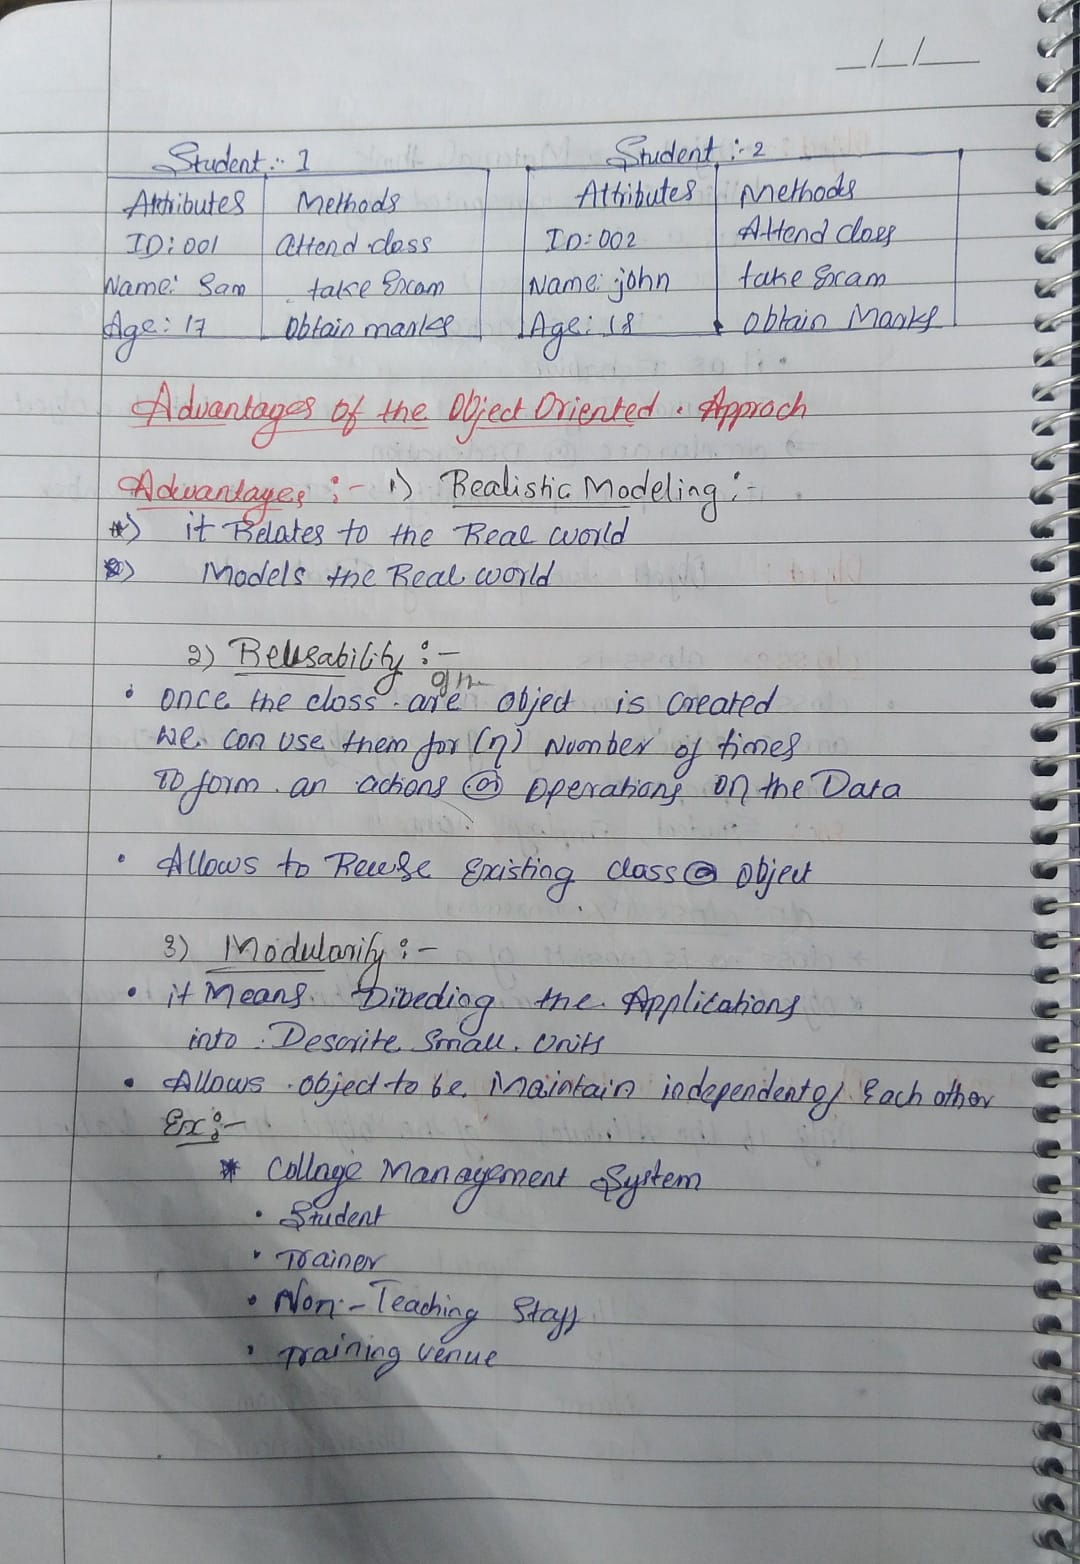 _/_/__
Student :- 1
Attributes Methods
ID: 001 attend class
Name: Sam take Exam
Age: 17 Obtain marks
Student :- 2
Attributes Methods
ID: 002 Attend class
Name: john take Exam
Age: 18 Obtain Marks
Advantages of the Object Oriented . Approch
Advantages :- 1) Realistic Modeling :-
*) it Relates to the Real world
*) Models the Real world
2) Reusability :-
• once the class are object is created
we can use them for (n) Number of times
To form an actions or Operations on the Data
• Allows to Reuse Existing class or object
3) Modularity :-
• it Means Diveding the Applications
into Descrite Small Units
• Allows object to be Maintain independent of Each other
Ex :-
* Collage Management System
• Student
• Trainer
• Non - Teaching Staff
• Training venue